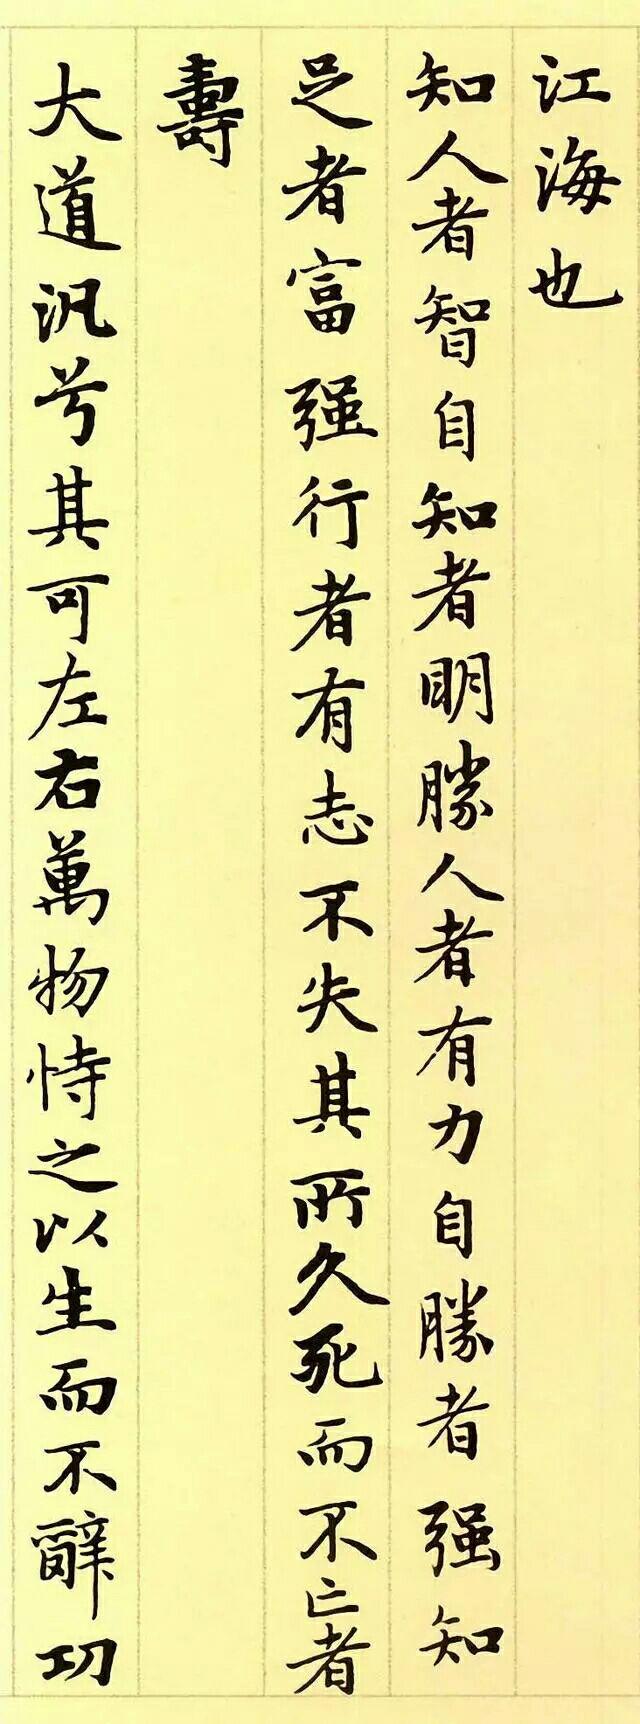 江海也
知人者智自知者明勝人者有力自勝者强知
足者富强行者有志不失其所久死而不亡者
壽
大道汎兮其可左右萬物恃之以生而不辭功